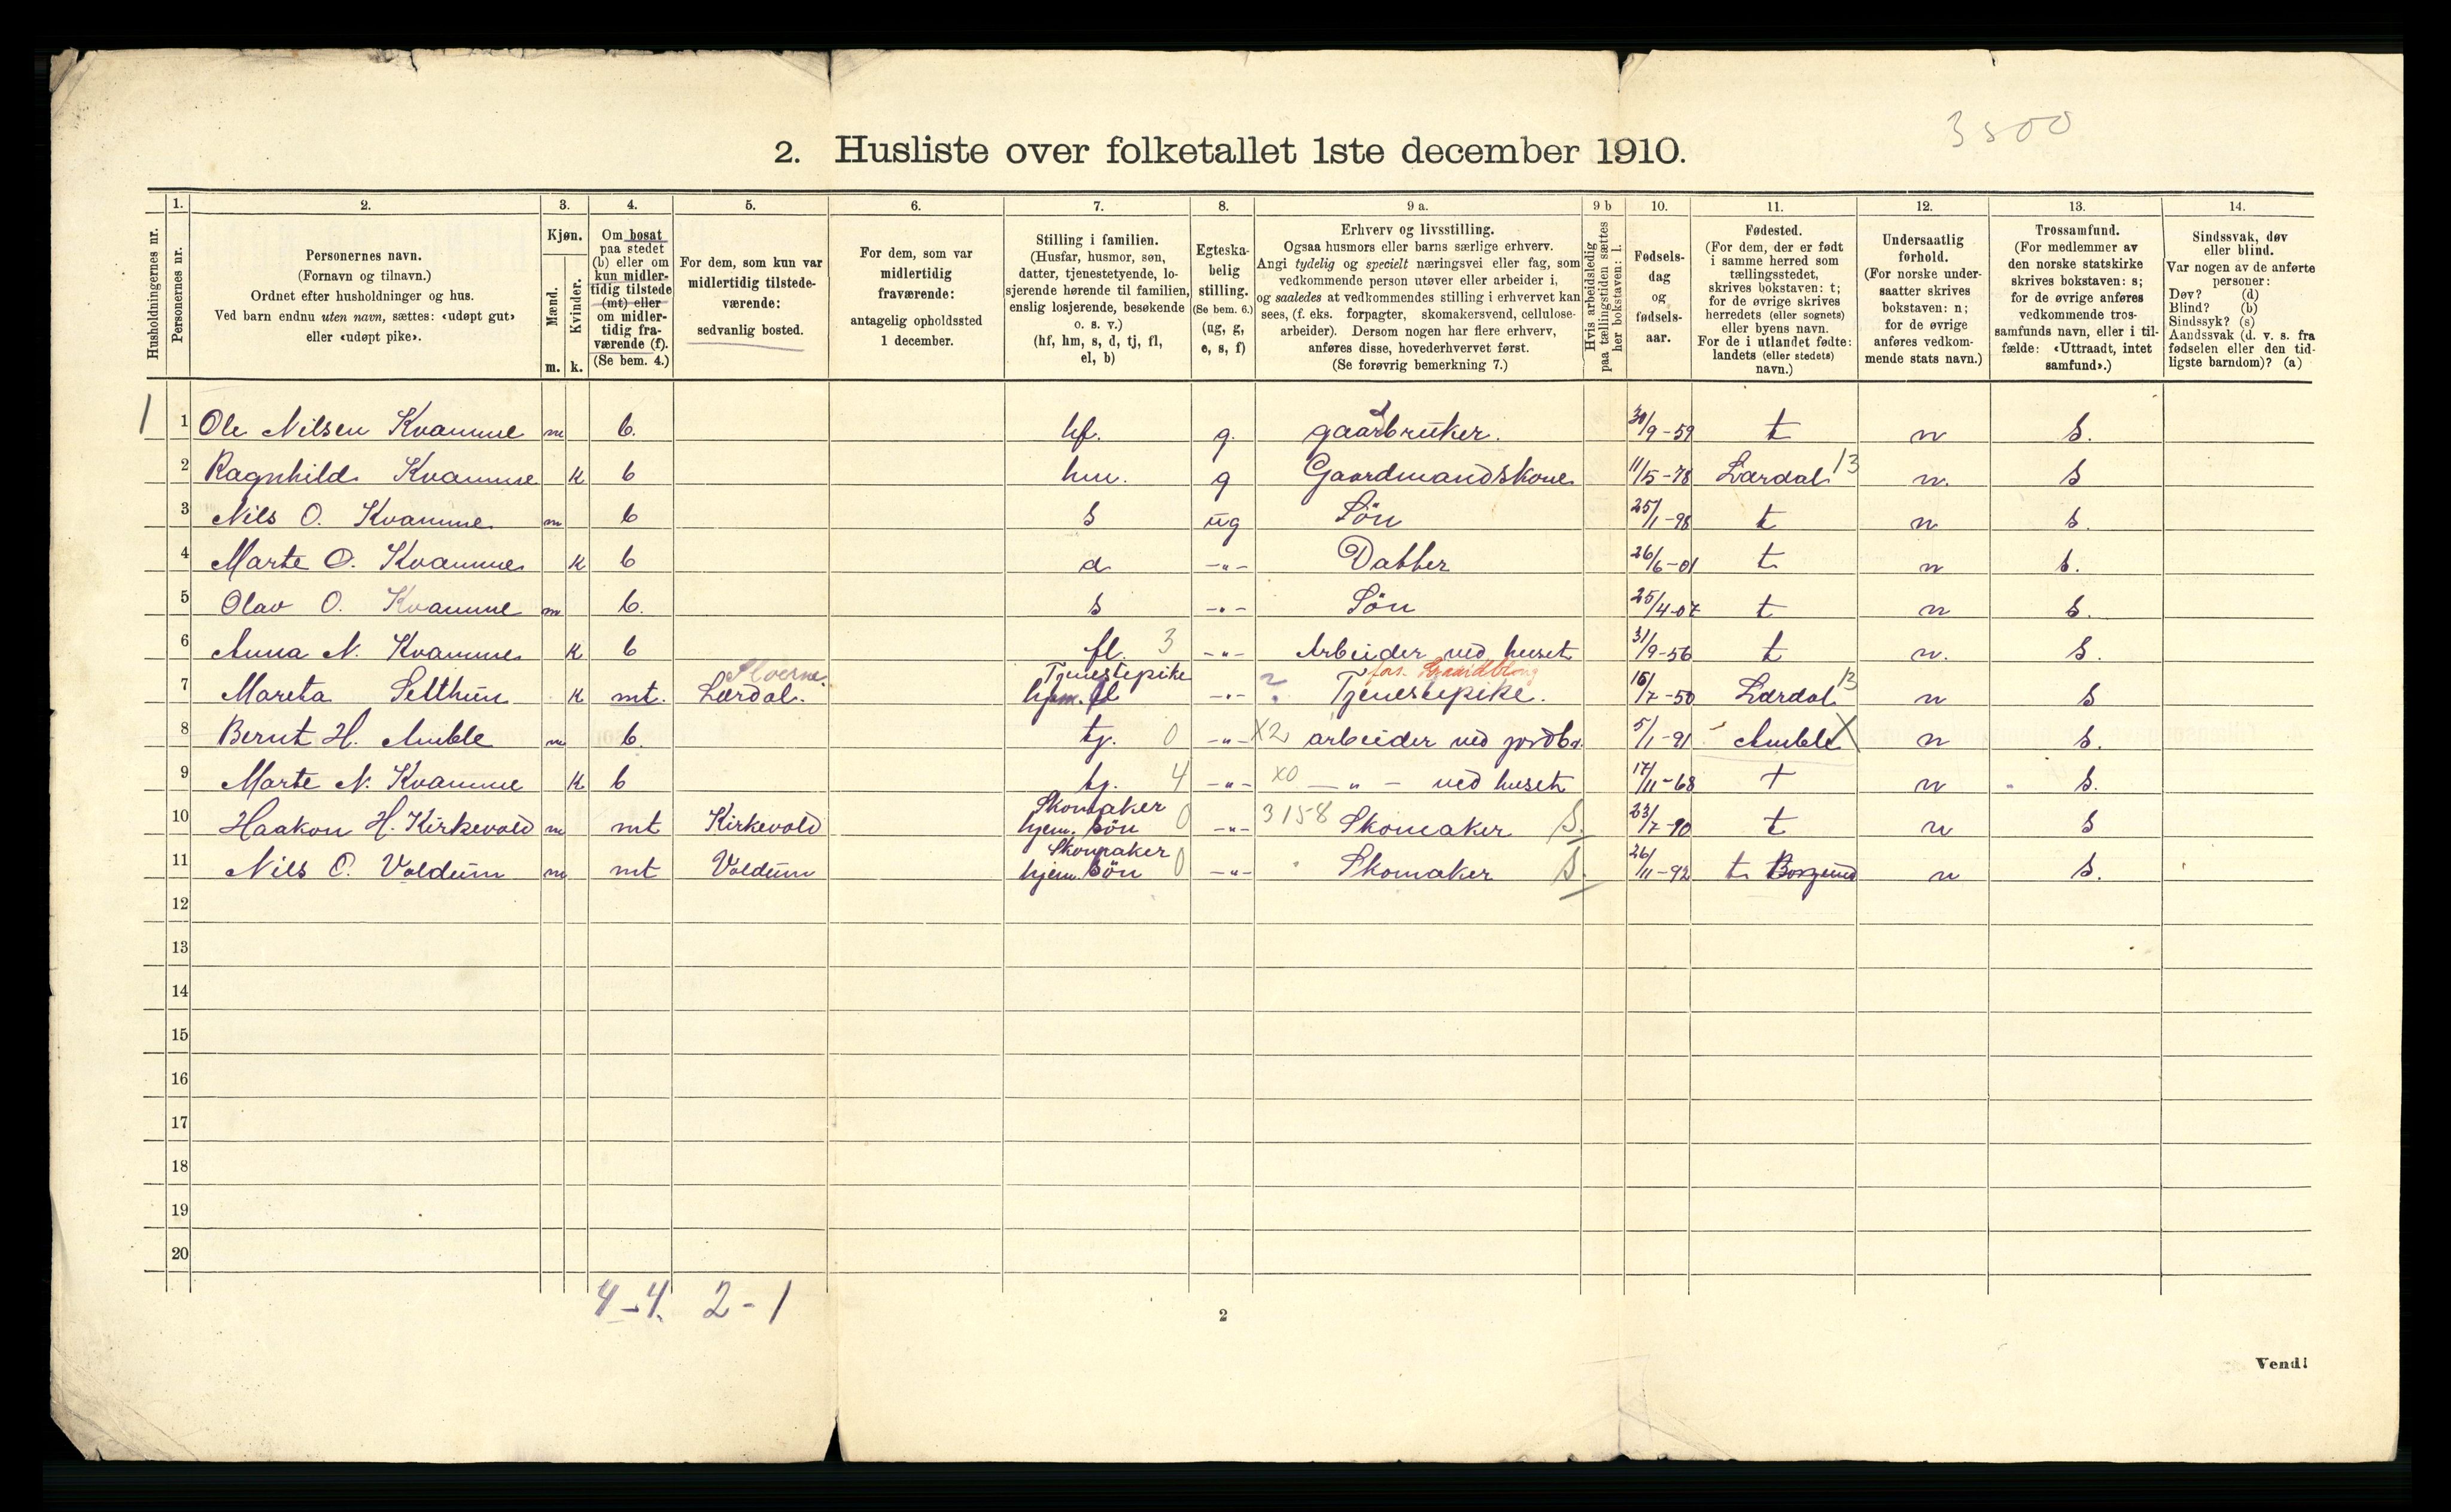 3500
2. Husliste over folketallet 1ste december 1910.
Husholdningernes nr.
1. 2. 3. 4. 5. 6. 7. 8. 9 a. 9 b 10. 11. 12. 13. 14.
Personernes nr.
Personernes navn.
(Fornavn og tilnavn.)
Ordnet efter husholdninger og hus.
Ved barn endnu uten navn, sættes: «udøpt gut»
eller «udøpt pike».
Kjøn.
Mænd.
Kvinder.
m. k.
Om bosat
paa stedet
(b) eller om
kun midler-
tidig tilstede
(mt) eller
om midler-
tidig fra-
værende (f).
(Se bem. 4.)
For dem, som kun var
midlertidig tilstede-
værende:
sedvanlig bosted.
For dem, som var
midlertidig
fraværende:
antagelig opholdssted
1 december.
Stilling i familien.
(Husfar, husmor, søn,
datter, tjenestetyende, lo-
sjerende hørende til familien,
enslig losjerende, besøkende
o. s. v.)
(hf, hm, s, d, tj, fl,
el, b)
Egteska-
belig
stilling.
(Se bem. 6.)
(ug, g,
e, s, f)
Erhverv og livsstilling.
Ogsaa husmors eller barns særlige erhverv.
Angi tydelig og specielt næringsvei eller fag, som
vedkommende person utøver eller arbeider i,
og saaledes at vedkommendes stilling i erhvervet kan
sees, (f. eks. forpagter, skomakersvend, cellulose-
arbeider). Dersom nogen har flere erhverv,
anføres disse, hovederhvervet først.
(Se forøvrig bemerkning 7.)
Hvis arbeidsledig
paa tællingstiden sættes
her bokstaven: l.
Fødsels-
dag
og
fødsels-
aar.
Fødested.
(For dem, der er født
i samme herred som
tællingsstedet,
skrives bokstaven: t;
for de øvrige skrives
herredets (eller sognets)
eller byens navn.
For de i utlandet fødte:
landets (eller stedets)
navn.)
Undersaatlig
forhold.
(For norske under-
saatter skrives
bokstaven: n;
for de øvrige
anføres vedkom-
mende stats navn.)
Trossamfund.
(For medlemmer av
den norske statskirke
skrives bokstaven: s;
for de øvrige anføres
vedkommende tros-
samfunds navn, eller i til-
fælde: «Uttraadt, intet
samfund».)
Sindssvak, døv
eller blind.
Var nogen av de anførte
personer:
Døv? (d)
Blind? (b)
Sindssyk? (s)
Aandssvak (d. v. s. fra
fødselen eller den tid-
ligste barndom)? (a)
1 1 Ole Nilsen Kvamme m b. hf. g. gaardbruker. 30/9-59 t n s.
2 Ragnhild Kvamme k b hm. g Gaardmandskone 11/5-78 Lærdal 13 n. s
3 Nils O. Kvamme m b s ug Sön 25/1-98 t n s.
4 Marte O. Kvamme k b d -"- Datter 26/6-01 t n s.
5 Olav O. Kvamme m b. s -"- Sön 25/4-07 t n s.
6 Anna N. Kvamme k b fl. 3 -"- Arbeider ved huset 31/9-56 t n. s.
Tjenestepike
7 Mareta Selthun k mt. Lærdal. hjem. fl -"- ? Tjenestepike. 16/7-50 Lærdal 13 n s
8 Bernt H. Amble m b. tj. 0 -"- X2 arbeider ved jordbr. 5/1-91 Amble X n s.
9 Marte N. Kvamme k b tj. 4 -"- X0 -"- ved huset 17/11-68 t n s.
Skomaker
10 Haakon H. Kirkevold m mt Kirkevold hjem. sön 0 -"- 3158 Skomaker S. 23/7-90 t n s
Skomaker
11 Nils O. Voldum m mt Voldum hjem. sön 0 -"- Skomaker S. 26/11-92 t. Borgund n s.
12
13
14
15
16
17
18
19
20
4-4. 2-1
2
Vend!